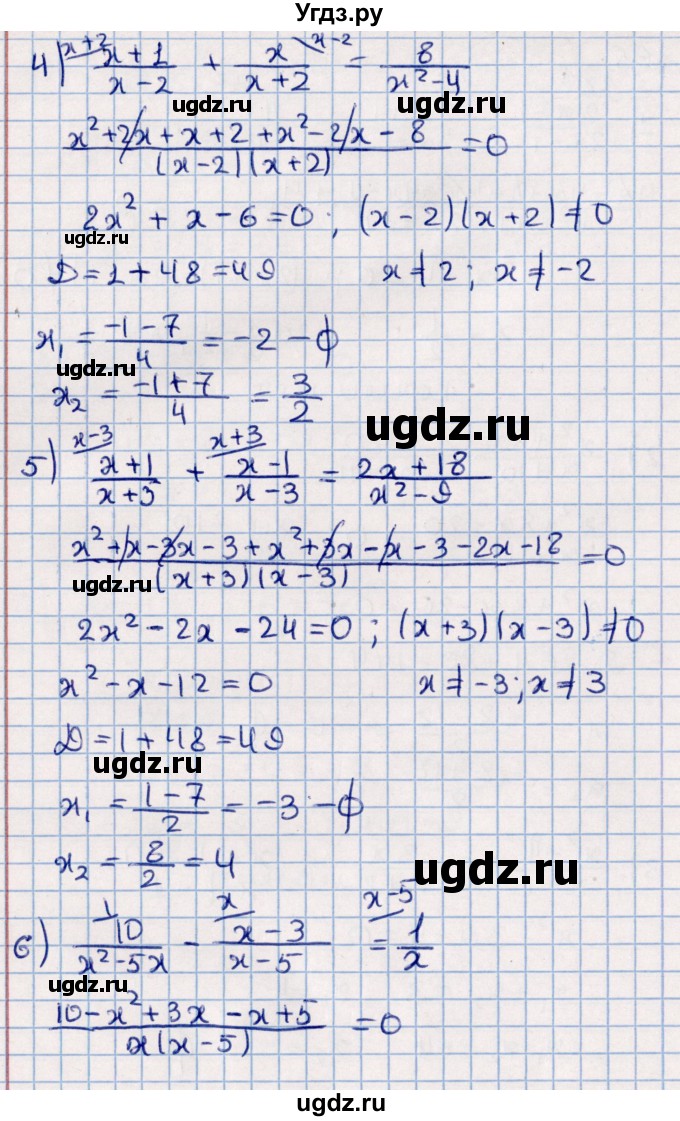 Угдз.ру
4) (x+1)/(x-2) ^(x+2) + x/(x+2) ^(x-2) = 8/(x²-4)
ugdz.ru ugdz.ru
(x²+2x+x+2+x²-2x-8)/((x-2)(x+2)) = 0
2x² + x - 6 = 0 ; (x-2)(x+2) ≠ 0
ugdz.ru
D = 1 + 48 = 49 x ≠ 2 ; x ≠ -2
x₁ = (-1-7)/4 = -2 - ф
ugdz.ru
x₂ = (-1+7)/4 = 3/2
ugdz.ru
5) (x+1)/(x+3) ^(x-3) + (x-1)/(x-3) ^(x+3) = (2x+18)/(x²-9)
ugdz.ru ugdz.ru
(x²+x-3x-3+x²+3x-x-3-2x-18)/((x+3)(x-3)) = 0
ugdz.ru
2x² - 2x - 24 = 0 ; (x+3)(x-3) ≠ 0
ugdz.ru
x² - x - 12 = 0 x ≠ -3 ; x ≠ 3
D = 1 + 48 = 49
ugdz.ru
x₁ = (1-7)/2 = -3 - ф
ugdz.ru
x₂ = 8/2 = 4
ugdz.ru
6) 10/(x²-5x) ^(1) - (x-3)/(x-5) ^(x) = 1/x ^(x-5)
ugdz.ru
(10-x²+3x-x+5)/(x(x-5)) = 0
ugdz.ru
ugdz.ru